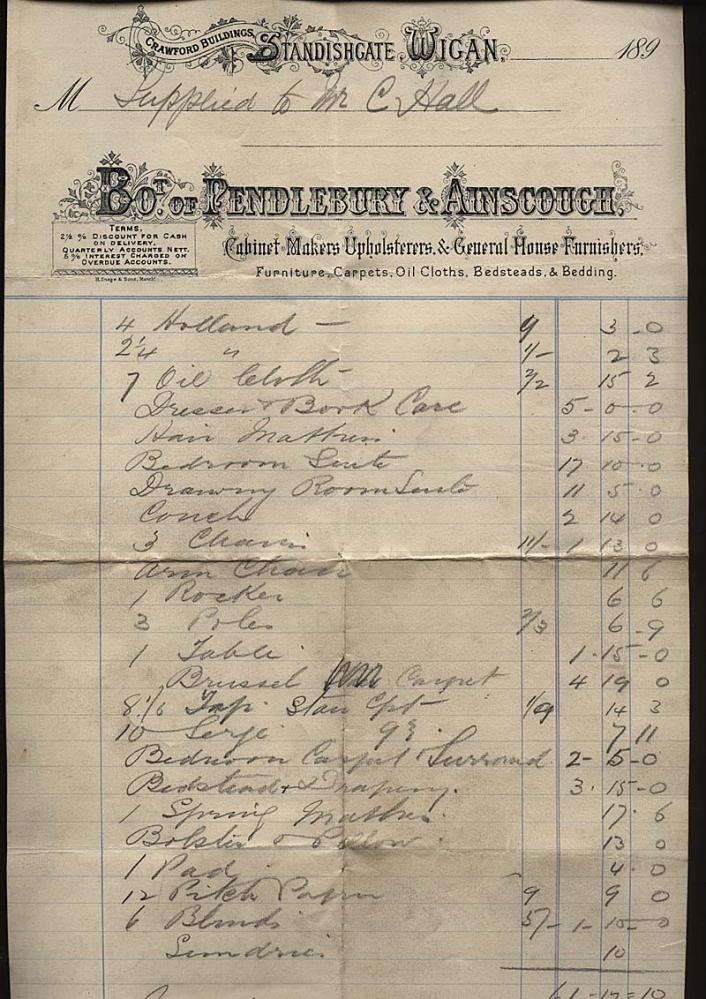 CRAWFORD BUILDINGS, STANDISHGATE, WIGAN, 189
M Supplied to Mr C Hall
BOT. OF PENDLEBURY & AINSCOUGH,
TERMS,
2½ % DISCOUNT FOR CASH
ON DELIVERY.
QUARTERLY ACCOUNTS NETT.
5 % INTEREST CHARGED ON
OVERDUE ACCOUNTS.
Cabinet Makers Upholsterers, & General House Furnishers,
Furniture, Carpets, Oil Cloths, Bedsteads, & Bedding.
4 Holland - 9 3-0
2¼ " 1/- 2 3
7 Oil Cloth 2/2 15 2
Dresser & Book Case 5-0-0
Hair Mattress 3-15-0
Bedroom Suite 17 10-0
Drawing Room Suite 11 5-0
Couch 2 14 0
3 Chairs 11/- 1 13 0
Arm Chair 11 6
1 Rocker 6 6
3 Poles 2/3 6-9
1 Table 1-15-0
Brussel Carpet 4 19 0
Tap. Stair Cpt 1/9 14 3
10 Serge 9½ 7 11
Bedroom Carpet & Surround 2-5-0
Bedstead & Drapery. 3-15-0
1 Spring Mattress 17-6
Bolster & Pillow 13 0
1 Pad 4-0
12 Pitch Paper 9 9 0
6 Blinds 5/- 1-10-0
Sundries 10
61-17-10